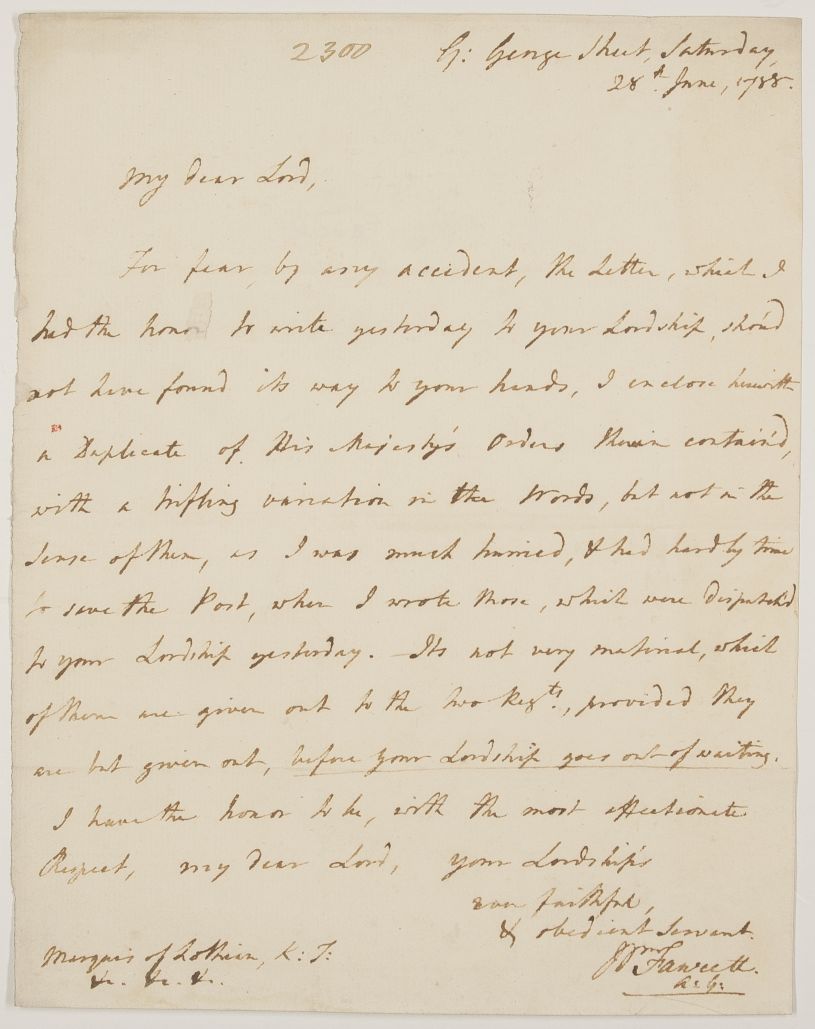 2300
G: George Street, Saturday,
28th June, 1788.
My dear Lord,
For fear, by any accident, the Letter, which I
had the honor to write yesterday to your Lordship, shou'd
not have found its way to your hands, I enclose herewith
a Duplicate of His Majesty's Orders therein contain'd,
with a trifling variation in the Words, but not in the
Sense of them, as I was much hurried, & had hardly time
to save the Post, when I wrote those, which were dispatch'd
to your Lordship yesterday. - Its not very material, which
of them are given out to the two Regts:, provided they
are but given out, before your Lordship goes out of waiting.
I have the honor to be, with the most affectionate
Respect, my dear Lord, your Lordship's
ever faithful,
& obedient Servant.
Wm Fawcett.
A: G:
Marquis of Lothian, K: T:
&c. &c. &c.